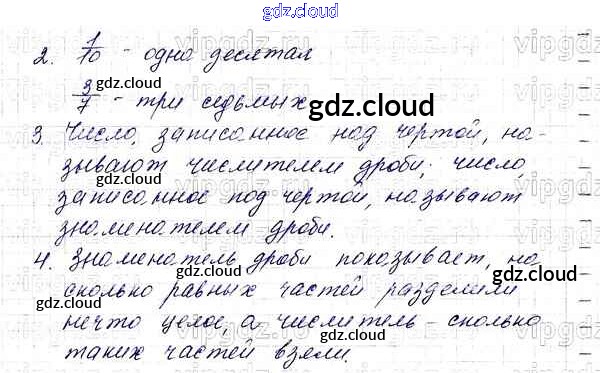 gdz.cloud
2. 1/10 - одна десятая
3/7 - три седьмых
gdz.cloud
gdz.cloud
3. Число, записанное над чертой, на-
зывают числителем дроби; число,
gdz.cloud
записанное под чертой, называют
gdz.cloud
знаменателем дроби.
4. Знаменатель дроби показывает, на
gdz.cloud
gdz.cloud
сколько равных частей разделили
gdz.cloud
нечто целое, а числитель - сколько
таких частей взяли.
gdz.cloud